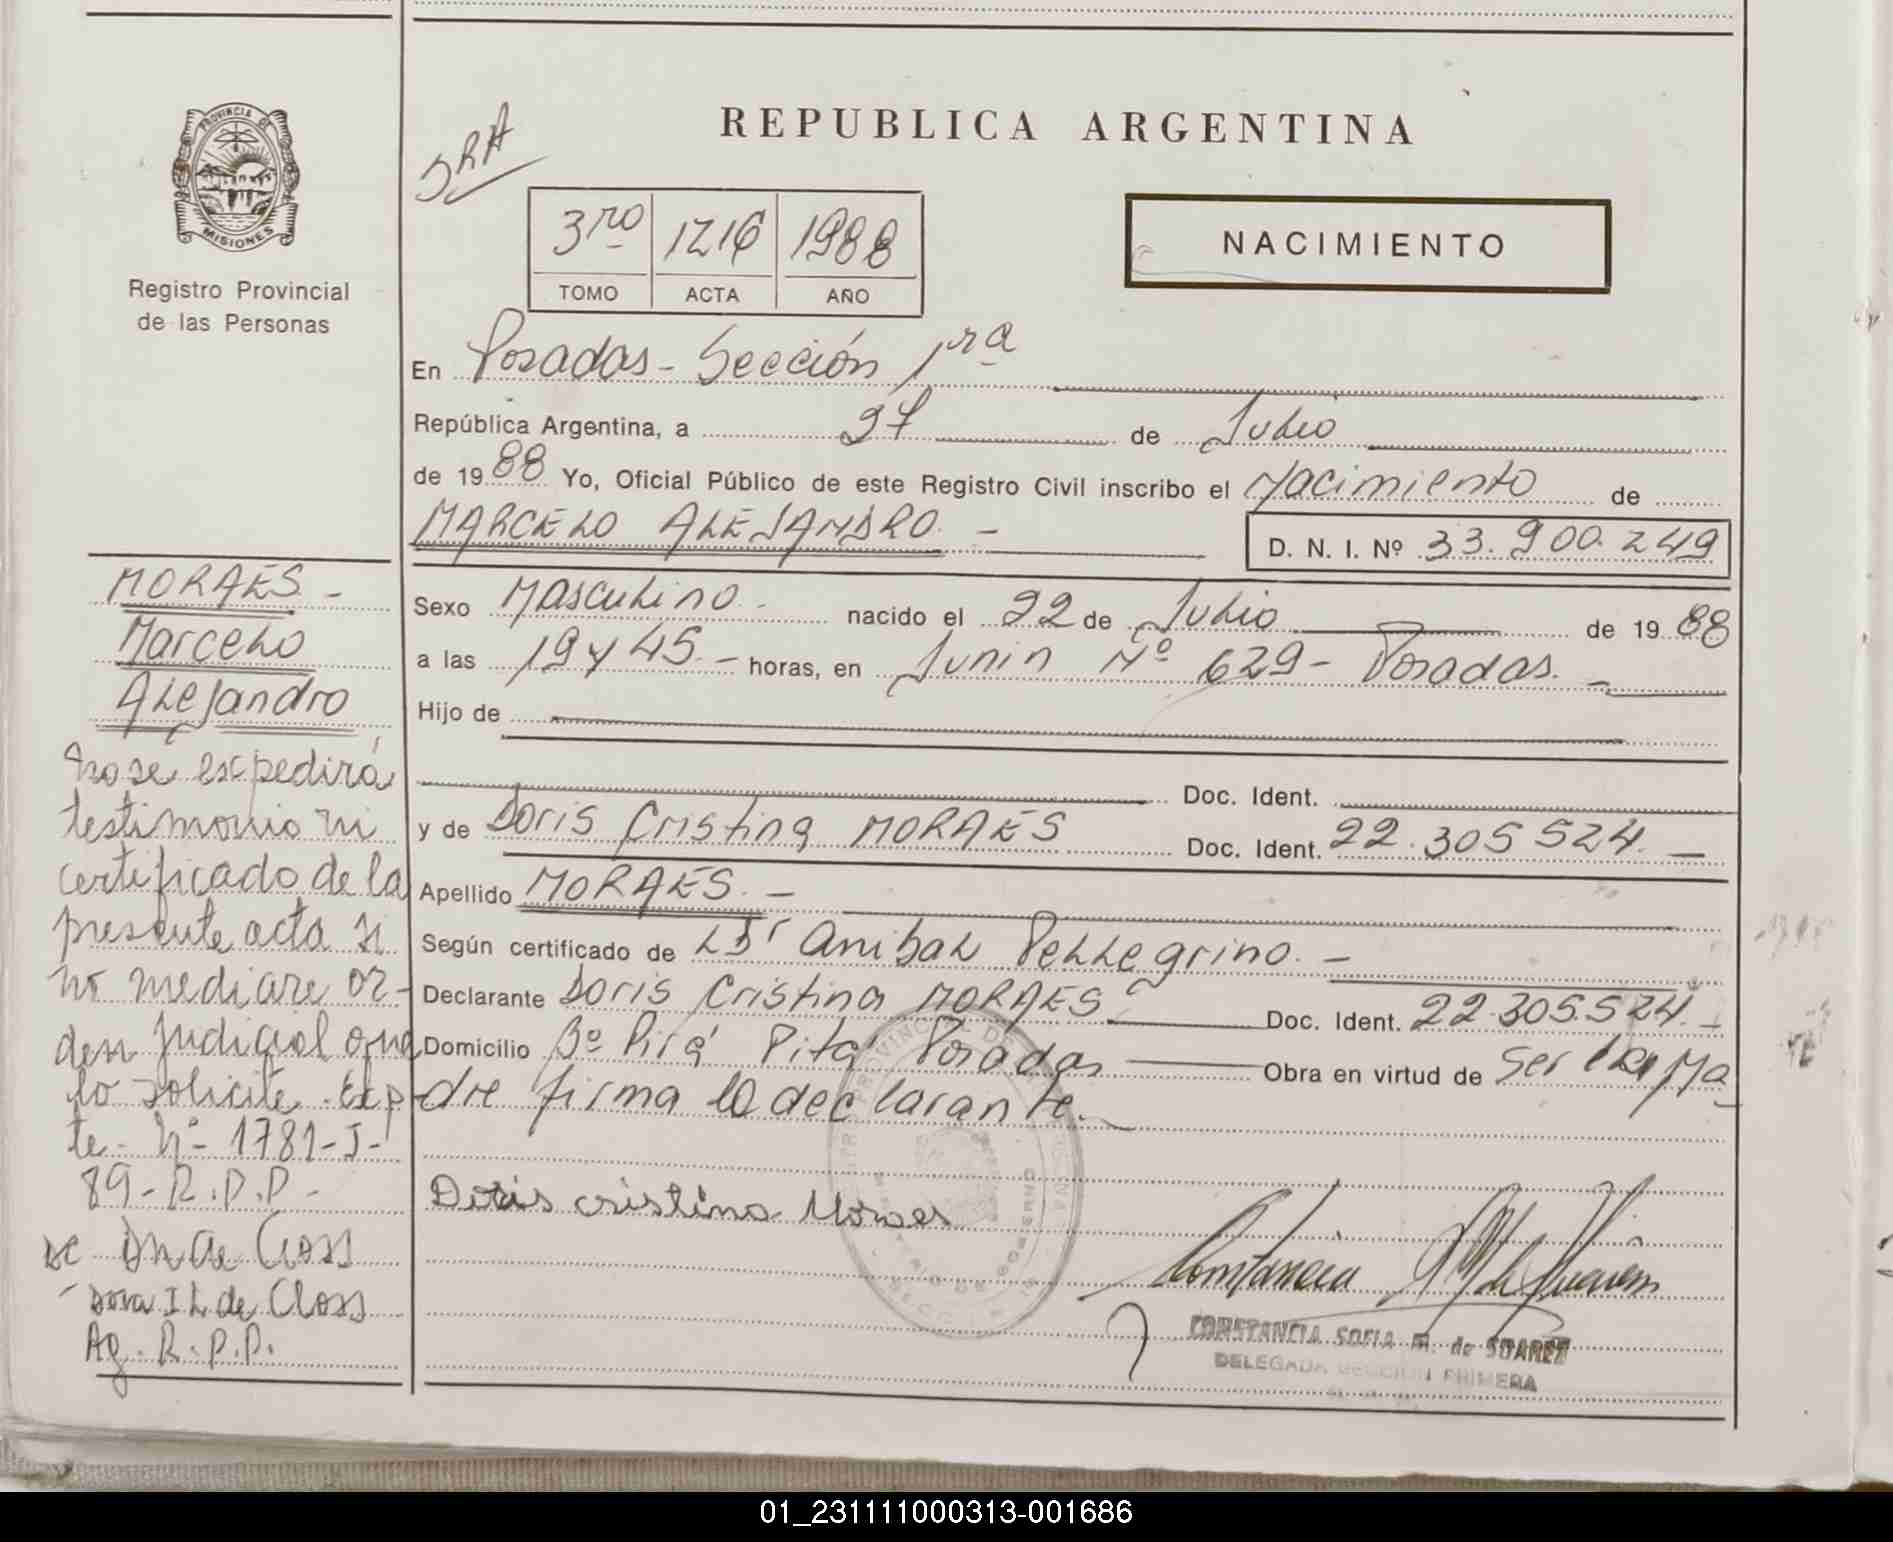 PROVINCIA DE
MISIONES
Registro Provincial
de las Personas
SRA
REPUBLICA ARGENTINA
3ro 1216 1988
TOMO ACTA AÑO
NACIMIENTO
En Posadas - Sección 1ra
República Argentina, a 27 de Julio
de 19 88 Yo, Oficial Público de este Registro Civil inscribo el Nacimiento de
MARCELO ALEJANDRO. -
D. N. I. Nº 33.900.249
Sexo Masculino. - nacido el 22 de Julio de 19 88
a las 19 y 45. - horas, en Junin Nº 629 - Posadas. -
Hijo de
Doc. Ident.
y de Doris Cristina MORAES Doc. Ident. 22.305 524. -
Apellido MORAES. -
Según certificado de LDr Anibal Pellegrino. -
Declarante Doris Cristina MORAES Doc. Ident. 22.305.524. -
Domicilio Bº Pirá Pitá Posadas Obra en virtud de ser la Ma
dre firma la declarante.
Doris cristina Moraes
CONSTANCIA SOFIA M. de SUAREZ
DELEGADA SECCION PRIMERA
MORAES. -
Marcelo
Alejandro
No se expedirá
testimonio ni
certificado de la
presente acta si
no mediare or-
den judicial que
lo solicite. Exp
te. Nº 1781-J-
89 - R.P.P. -
de Closs
Dora I L de Closs
Ag. R. P. P.
01_231111000313-001686